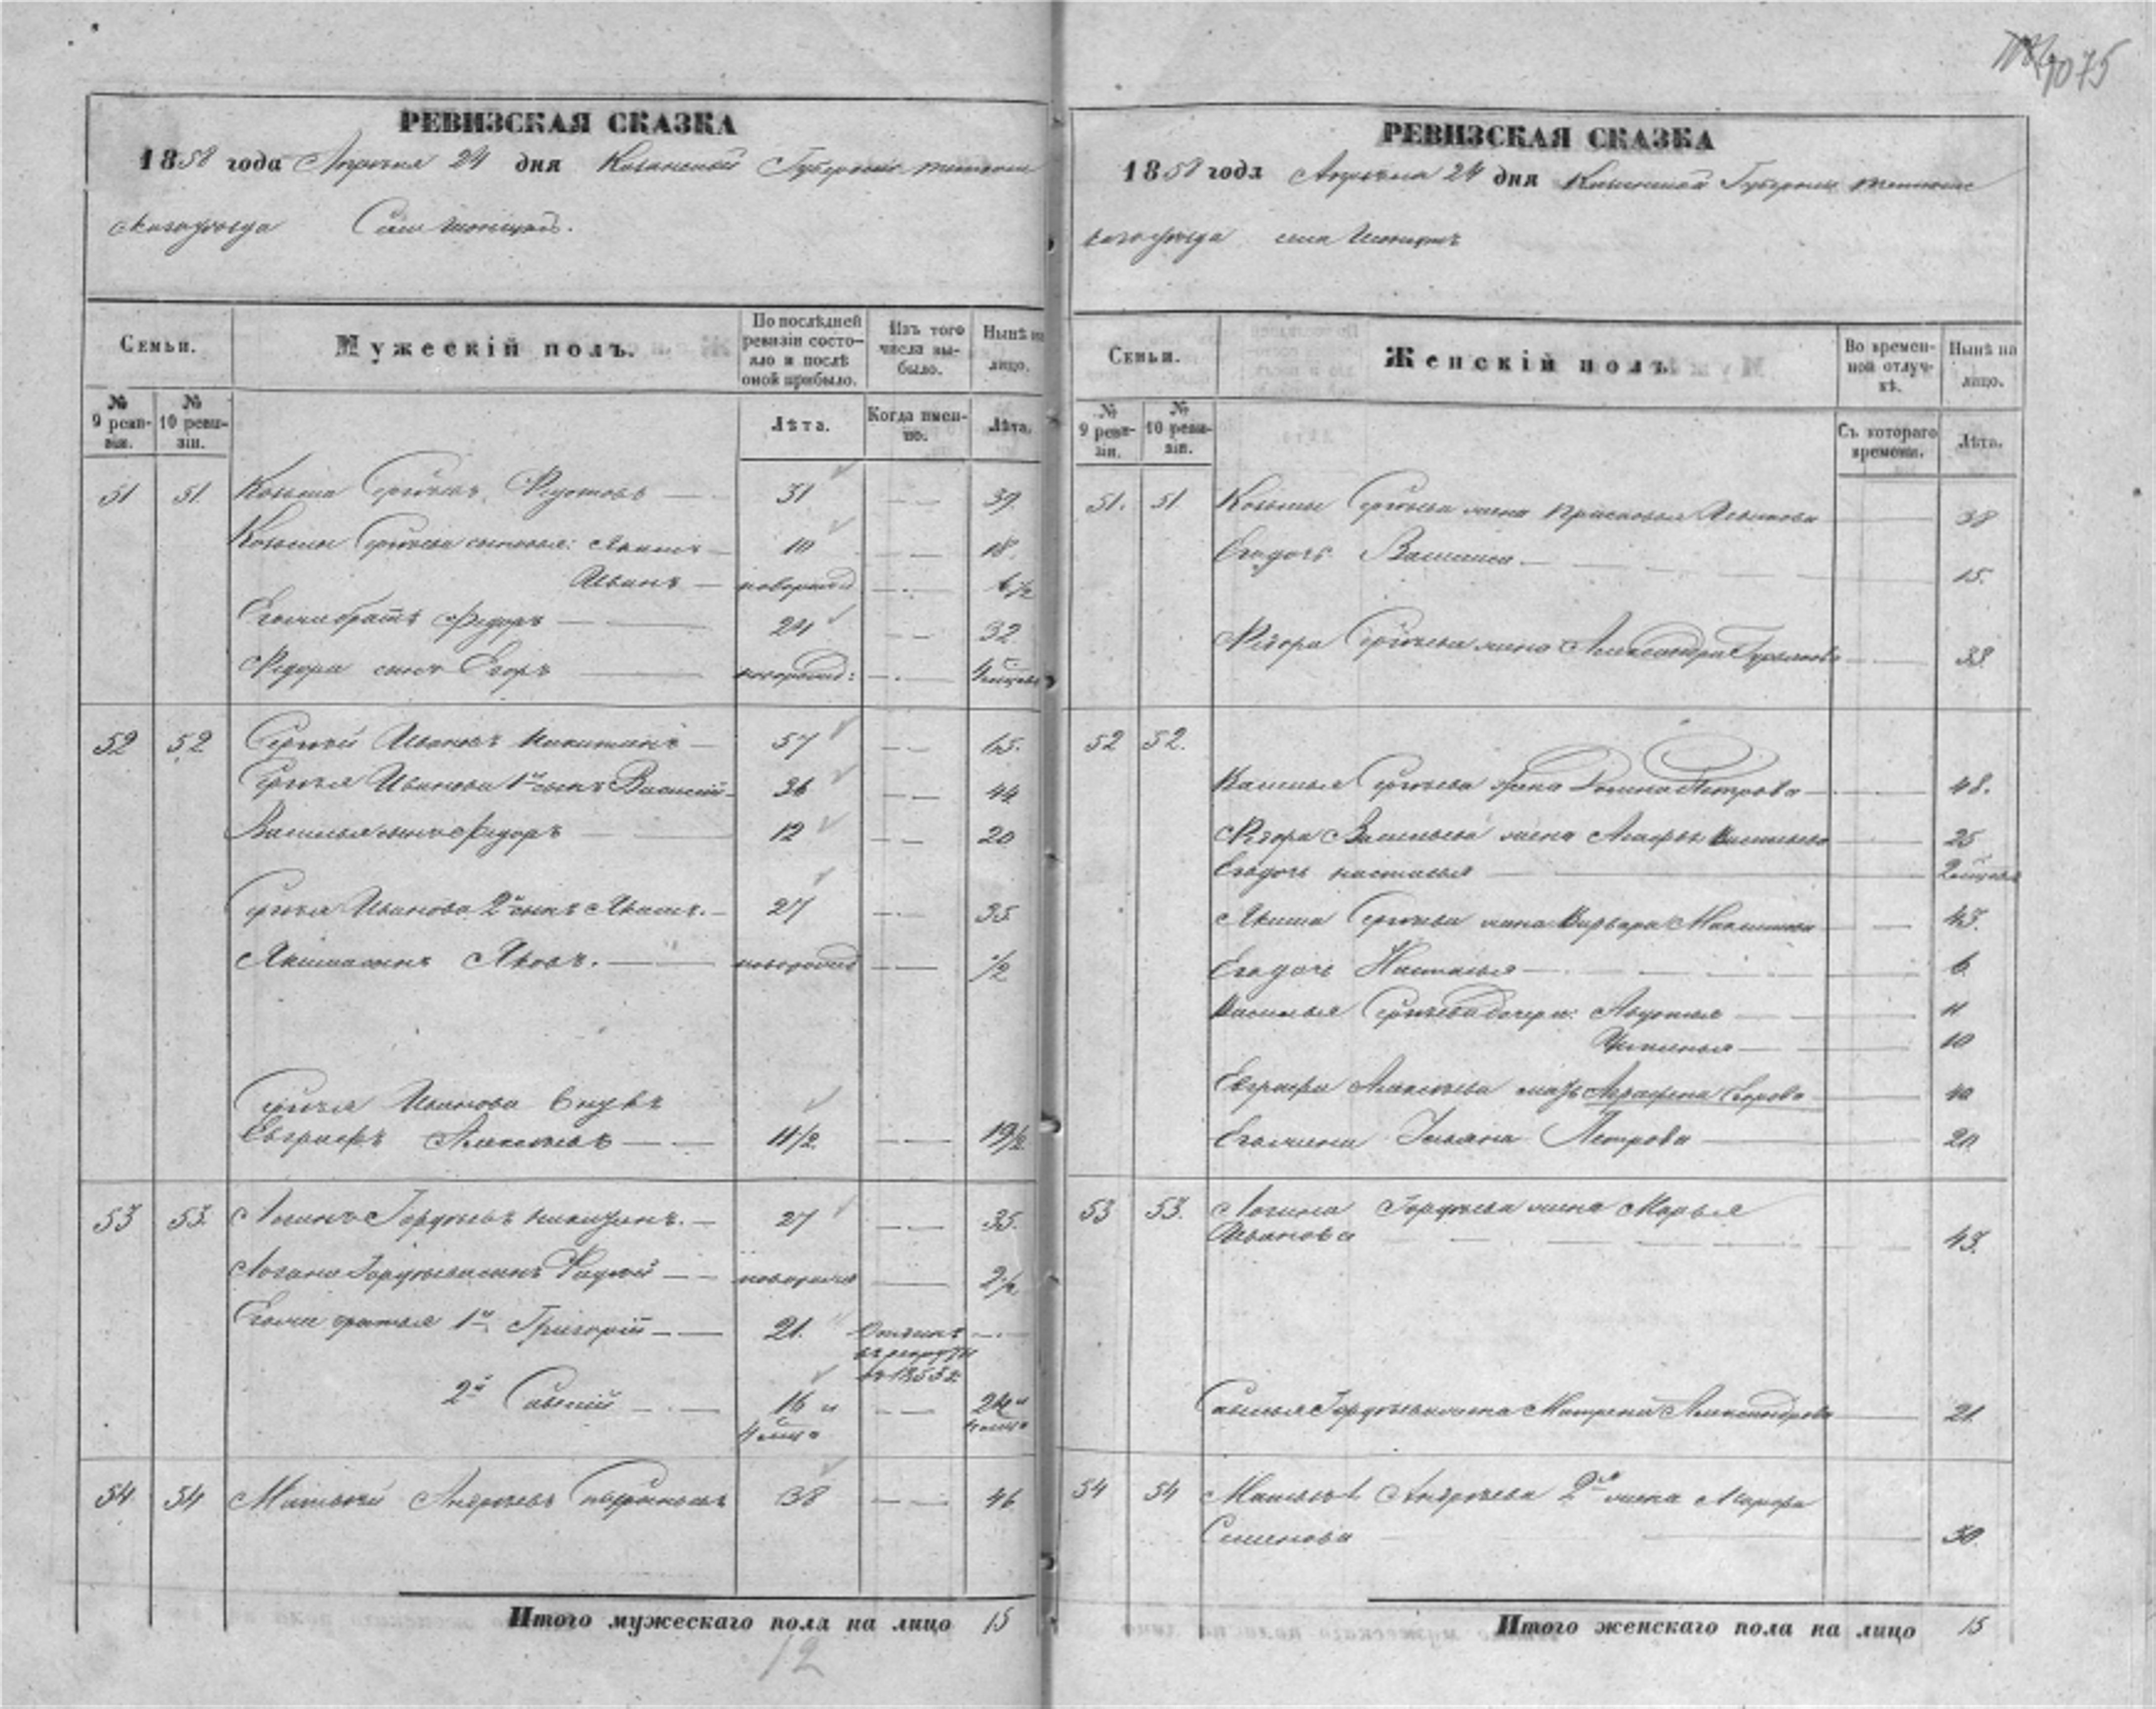 1075
РЕВИЗСКАЯ СКАЗКА
1858 года Апреля 24 дня Казанской Губернии Тетюш
скаго уезда Села
Семьи.
Мужескій полъ.
По послѣдней ревизіи состояло и послѣ оной прибыло.
Изъ того числа выбыло.
Нынѣ на лицо.
№ 9 ревизіи.
№ 10 ревизіи.
Лѣта.
Когда именно.
Лѣта.
51 51. Козьма Сергѣевъ 31 39.
Козьмы Сергѣева сыновья: Якимъ 10 18.
Иванъ новорожд 6 1/2
Его же братъ Федоръ 24 32
Федора сынъ Егоръ новорожд: 4 месяцевъ
52 52 Сергѣй Ивановъ Никитинъ 57 65.
Сергѣя Иванова 1й сынъ Василій 36 44
Василья сынъ Федоръ 12 20
Сергѣя Иванова 2й сынъ Якимъ. 27 35
Якима сынъ Яковъ. новорожд 1/2
Сергѣя Иванова внукъ
Евграфъ Алексѣевъ 11 1/2 19 1/2
53 53. Логинъ Гордѣевъ 27 35.
Логина Гордѣева сынъ новорожд 2 1/2
Его же братья 1й Григорій 21. Отданъ
въ рекруты
въ 1855 г.
2й Савелій 16 и 24 и
4 меся 4 меся
54 54 Матвѣй Андреевъ 38 46
Итого мужескаго пола на лицо 15
12
РЕВИЗСКАЯ СКАЗКА
1858 года Апреля 24 дня Казанской Губернии Тетюш
скаго уезда села
Семьи.
Женскій полъ.
Во временной отлучкѣ.
Нынѣ на лицо.
№ 9 ревизіи.
№ 10 ревизіи.
Съ котораго времени.
Лѣта.
51. 51. Козьмы Сергѣева жена Прасковья 38
Его дочь 15.
Федора Сергѣева жена Александра 33.
52 52.
Василья Сергѣева жена Петрова 48.
Федора Васильева жена Васильева 25
Его дочь Настасья 2 месяцев
Якима Сергѣева жена Варвара 43.
Его дочь Настасья 6
Василья Сергѣева дочери: Авдотья 11
10
Евграфа Алексѣева мать Аграфена Егорова 40
Его жена Ульяна Петрова 20
53 53. Логина Гордѣева жена Марья
Иванова 43.
Савелья Гордѣева жена Матрена Александрова 21.
54 54 Матвѣя Андреева 2я жена Марфа
Семенова 30
Итого женскаго пола на лицо 15